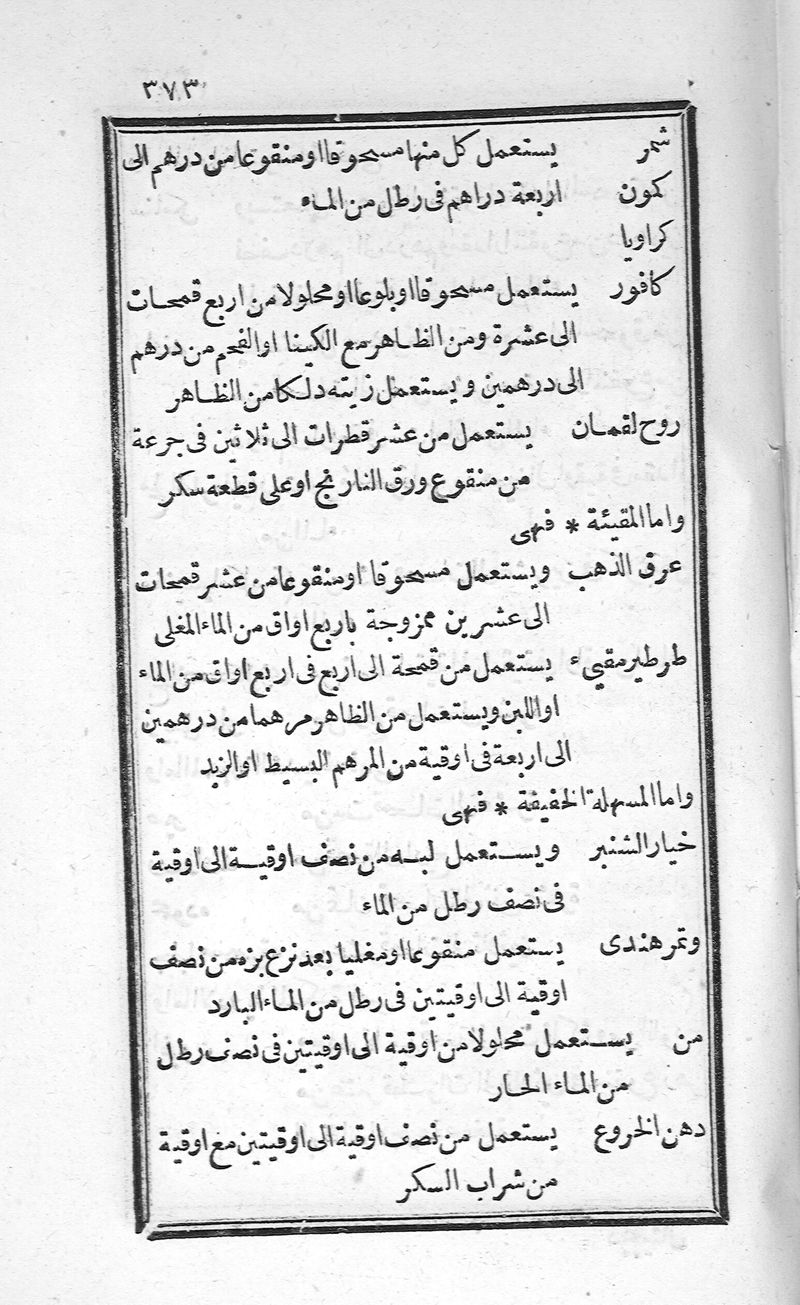 ٣٧٣
شمر يستعمل كل منها مسحوقا او منقوعا من درهم الى
كمون اربعة دراهم فى رطل من الماء
كراويا
كافور يستعمل مسحوقا او بلوعا او محلولا من اربع قمحات
الى عشرة ومن الظاهر مع الكينا او الفحم من درهم
الى درهمين ويستعمل زيته دلكا من الظاهر
روح لقمان يستعمل من عشر قطرات الى ثلاثين فى جرعة
من منقوع ورق النارنج او على قطعة سكر
واما المقيئة * فهى
عرق الذهب ويستعمل مسحوقا او منقوعا من عشر قمحات
الى عشرين ممزوجة باربع اواق من الماء المغلى
طرطير مقيىء يستعمل من قمحة الى اربع فى اربع اواق من الماء
او اللبن ويستعمل من الظاهر مرهما من درهمين
الى اربعة فى اوقية من المرهم البسيط او الزبد
واما المسهلة الخفيفة * فهى
خيار الشنبر ويستعمل لبه من نصف اوقية الى اوقية
فى نصف رطل من الماء
وتمر هندى يستعمل منقوعا او مغليا بعد نزع بزه من نصف
اوقية الى اوقيتين فى رطل من الماء البارد
من يستعمل محلولا من اوقية الى اوقيتين فى نصف رطل
من الماء الحار
دهن الخروع يستعمل من نصف اوقية الى اوقيتين مع اوقية
من شراب السكر